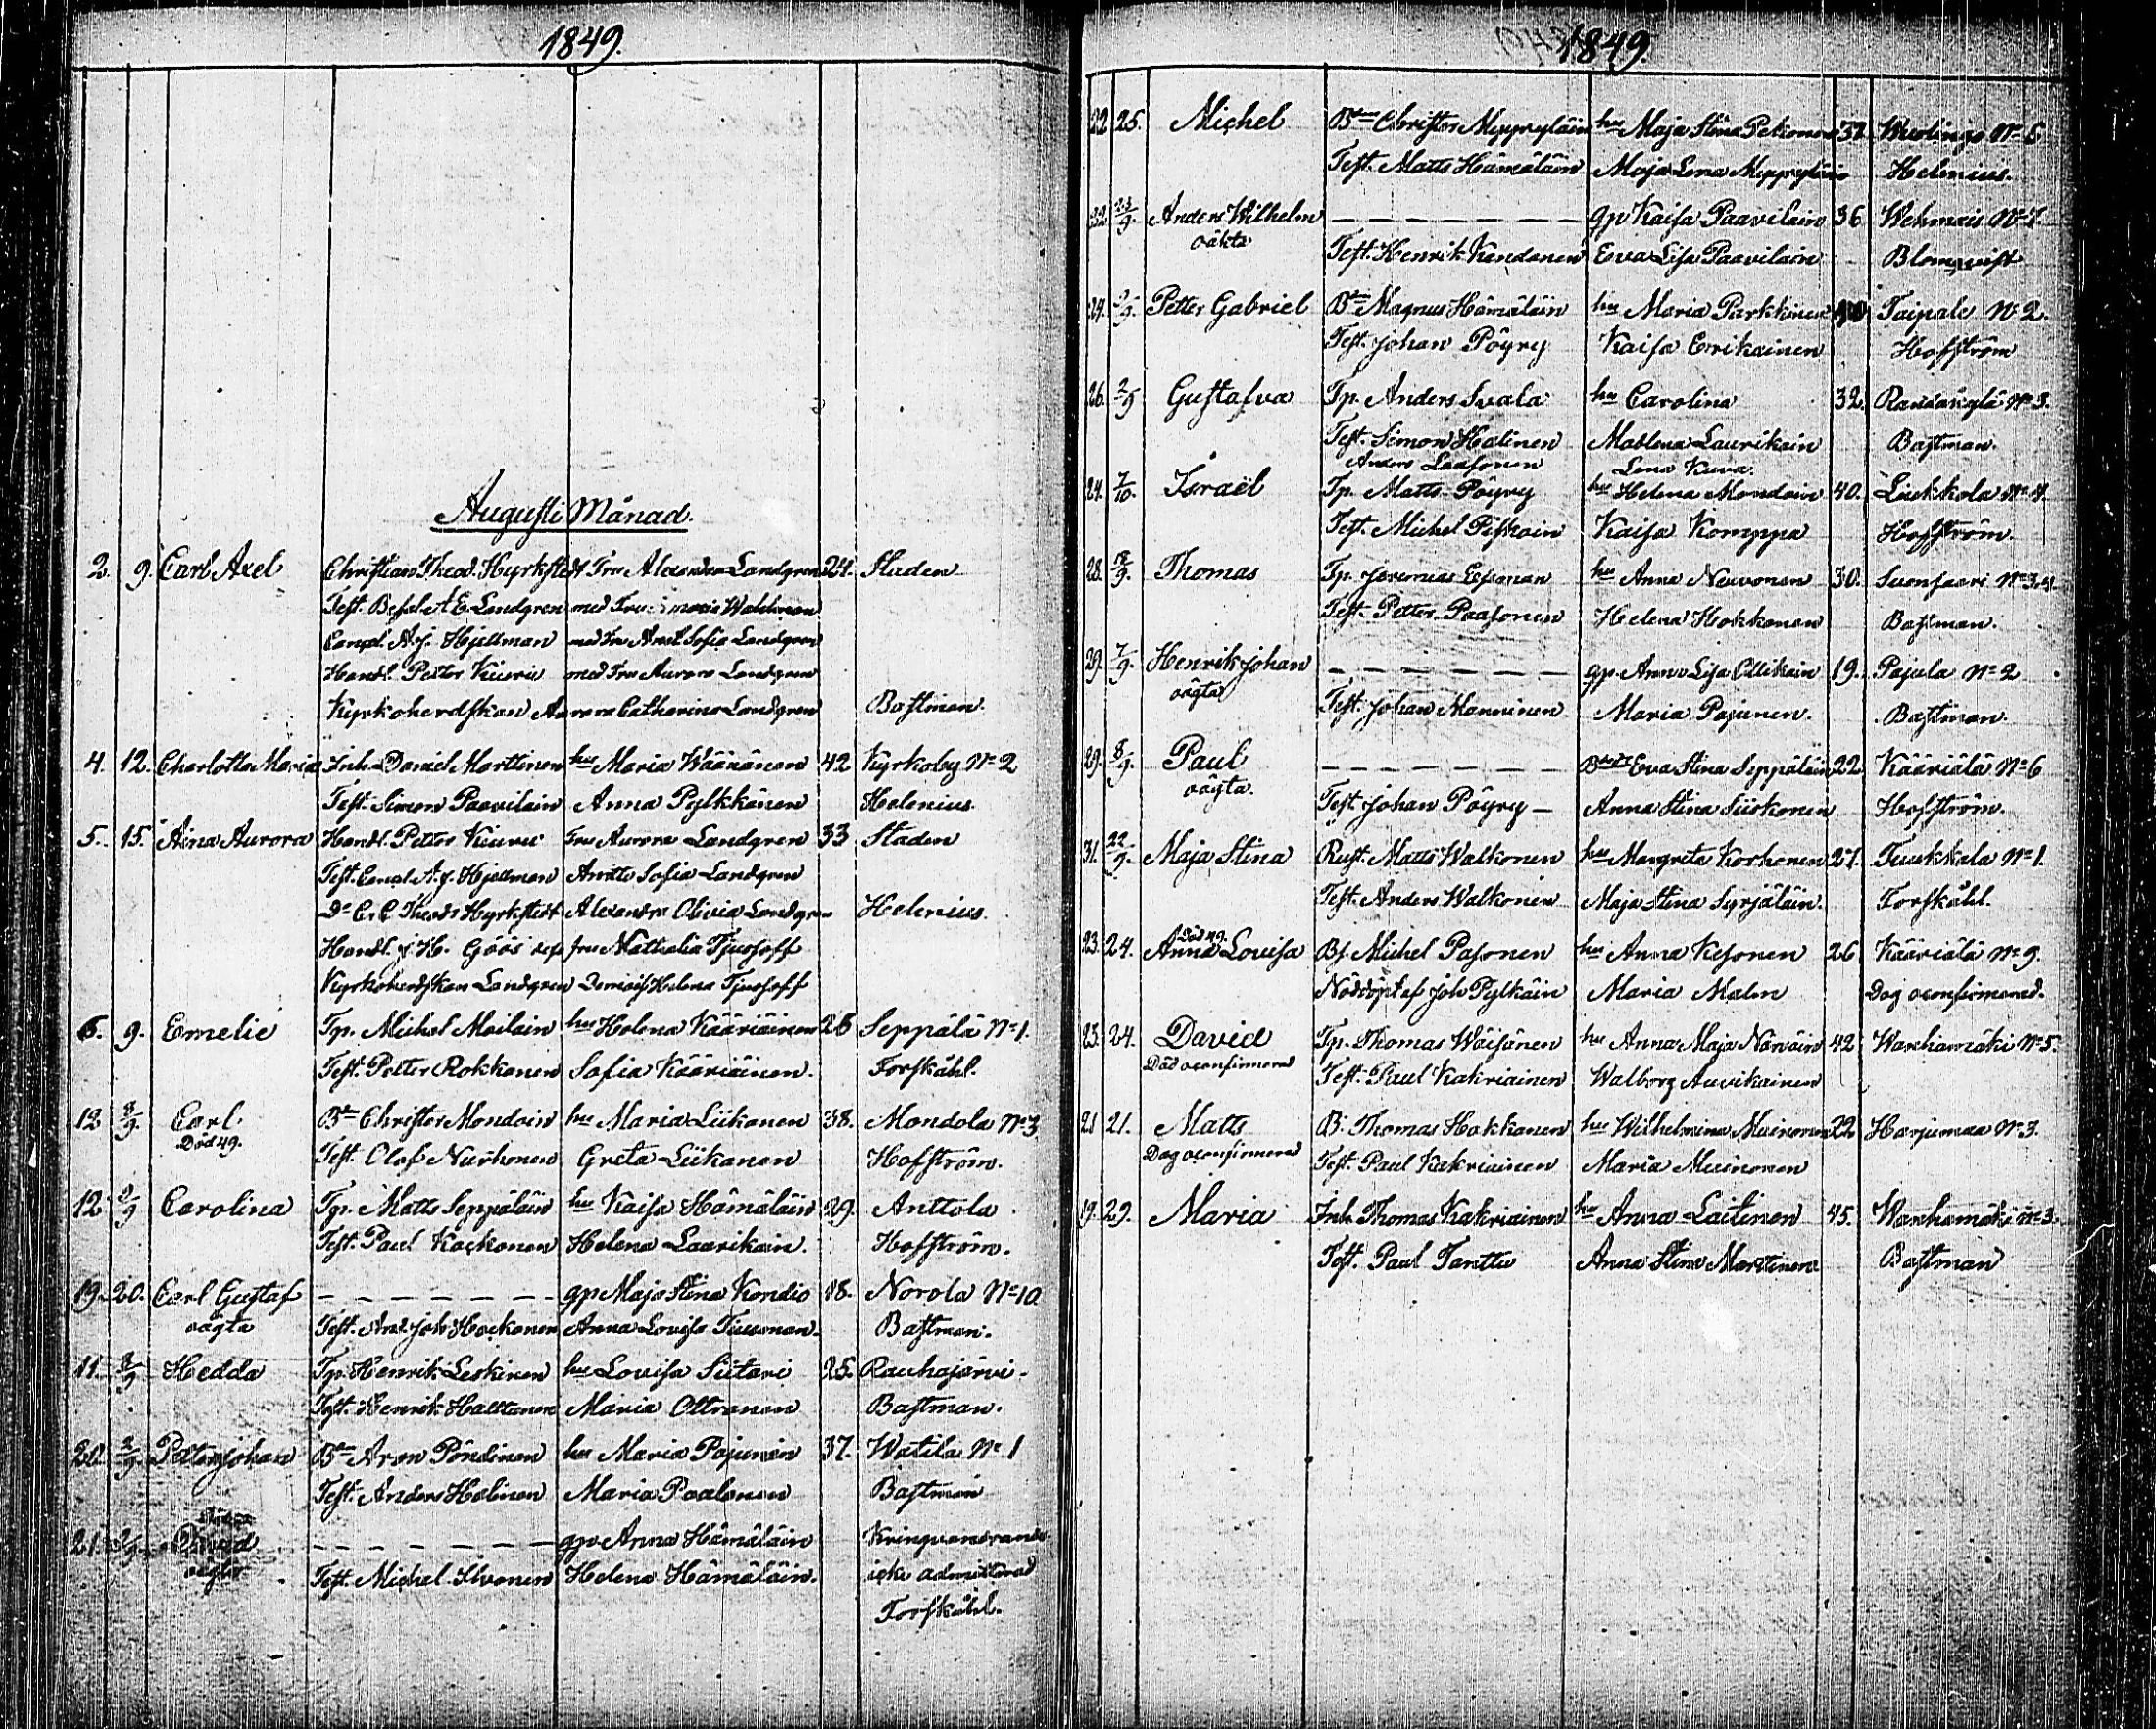 1849.
Augusti Månad.
2. 9. Carl Axel Christian Theod. Hyrkstedt Fru Alexandra Landgren 24. Staden
Test. Befal. A E. Landgren med Fru Maria Wahlman
Cancel. A. J. Hjellman med Fru Amal. Sofia Landgren
Handl. Petter Kiuru med Fru Aurora Landgren
Kyrkoherdskan Aurora Catharina Landgren Bastman.
4. 12. Charlotta Maria Inh. Daniel Marttinen hu Maria Wäänänen 42 Kyrkoby No 2
Test. Simon Paavilain Anna Pylkkänen Helenius.
5. 15. Aina Aurora Handl. Petter Kiuru Fru Aurora Landgren 33 Staden
Test. Cancel. A. J. Hjellman Amalia Sofia Landgren
Do C. C. Theod. Hyrkstedt Alexandra Olivia Landgren Helenius.
Handl. J. H. Göös fru Nathalia Tjusoff
Kyrkoherdskan Landgren Demois Helena Tjusoff
6. 9. Emelie Tp. Michel Moilain hu Helena Kääriäinen 26 Seppälä No 1.
Test. Petter Rokkanen Sofia Kääriäinen. Forskåhl.
12 8/9. Carl Bdn Christer Mondain hu Maria Liikanen 38. Mondola No 3
Död 49.
Test. Olof Narhonen Greta Liikanen Hofström.
12 2/9 Carolina Tp. Matts Seppäläin hu Kaisa Hämäläin 29. Anttola
Test. Paul Kackonen Helena Laurikain. Hofström.
19. 20. Carl Gustaf – – – – – – gp Maja Stina Kondio 18. Norola No 10
oägta Test. And. Joh. Hackonen Anna Lovisa Tiusonen. Bastman.
11. 8/9 Hedda Tp. Henrik Leskinen hu Lovisa Siitari 25. Rauhajärvi
Test. Henrik Halttunen Maria Ottranen Bastman.
20. 2/9. Petter Johan Bdn Aron Pöndinen hu Maria Pajunen 37. Watila No 1
Test. Anders Halinen Maria Paalanen Bastman
21. – – – – – – gp Anna Hämäläin Kringvandrande
oägta Test. Michel Ilvonen Helena Hämäläin. icke admitterad
Forskåhl.
1849.
22 25. Michel Bdn Christer Myyryläin hu Maja Stina Pekonen 37 No 6
Test. Matts Hämäläin Maja Lena Myyryläin Helenius.
22 23/9. Anders Wilhelm – – – – – – gp Kaisa Paavilain 36 Wehmais No 7
oäkta Test. Henrik Kandanen Eva Lisa Paavilain Blomqvist
24. 2/9. Petter Gabriel Bdn Magnus Hämäläin hu Maria Parkkinen Taipale No 2.
Test. Johan Pöyry Kaisa Errikainen Hofström
26. 2/9 Gustafva Tp. Anders Svala hu Carolina 32. No 3.
Test. Simon Halinen Mablena Laurikain Bastman.
Anders Laasonen Lena Kuva.
24. 7/10. Israël Tp. Matts Pöyry hu Helena Mondain 40. Liukkola No 4.
Test. Michel Piskain Kaisa Komppa Hofström.
28. 8/9. Thomas Tp. Jeremias Eesman hu Anna Neuvonen 30. Suonsaari No 3.4.
Test. Petter Paasonen Helena Hokkanen Bastman.
29. 7/9. Henrik Johan – – – – – – gp. Anna Lisa Ollikain 19. Pajula No 2
oägta Test. Johan Manninen Maria Pajunen. Bastman.
29. 8/9. Paul – – – – – – Eva Stina Seppäläin 22 Kääriälä No 6
oägta. Test. Johan Pöyry – Anna Stina Siiskonen Hofström.
31. 22/9. Maja Stina Rust. Matts Walkonen hu Margreta Korhonen 27. Tuukkala No 1.
Test. Anders Walkonen Maja Stina Syrjäläin. Forskåhl.
Död 49.
23. 24. Anna Lovisa Bs. Michel Pasonen hu Anna Kesonen 26 Kääriälä No 9.
Nöddöpt af Joh Pylkäin Maria Malm Dog oconfirmerad.
23. 24. David Tp. Thomas Wäisänen hu Anna Maja Narväin 42 Warhamäki No 5.
Död oconfirmerad Test. Paul Kakriainen Walborg Auvikainen
21 21. Matts B. Thomas Hokkanen hu Wilhelmina Muinonen 22 Harjumaa No 3.
Dog oconfirmerad Test. Paul Kakriainen Maria Muinonen
19. 29. Maria Inh. Thomas Kakriainen hu Anna Laitinen 45. Warhamäki No 3.
Test. Paul Tanttu Anna Stina Marttinen Bastman